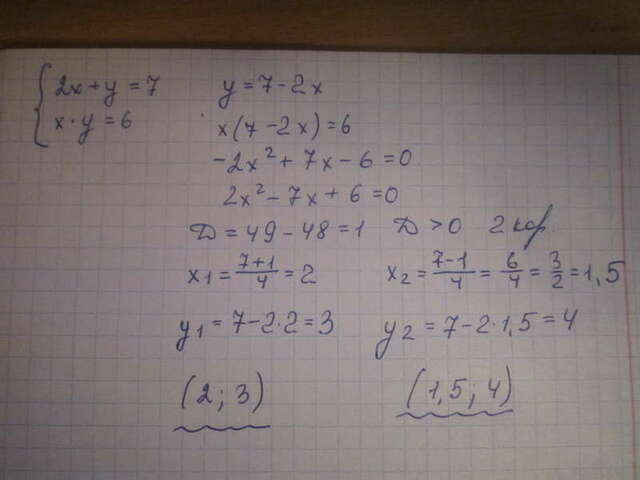 2x + y = 7 y = 7 - 2x
x · y = 6 x(7 - 2x) = 6
-2x² + 7x - 6 = 0
2x² - 7x + 6 = 0
D = 49 - 48 = 1 D > 0 2 кор.
x₁ = (7+1)/4 = 2 x₂ = (7-1)/4 = 6/4 = 3/2 = 1,5
y₁ = 7 - 2·2 = 3 y₂ = 7 - 2·1,5 = 4
(2; 3) (1,5; 4)